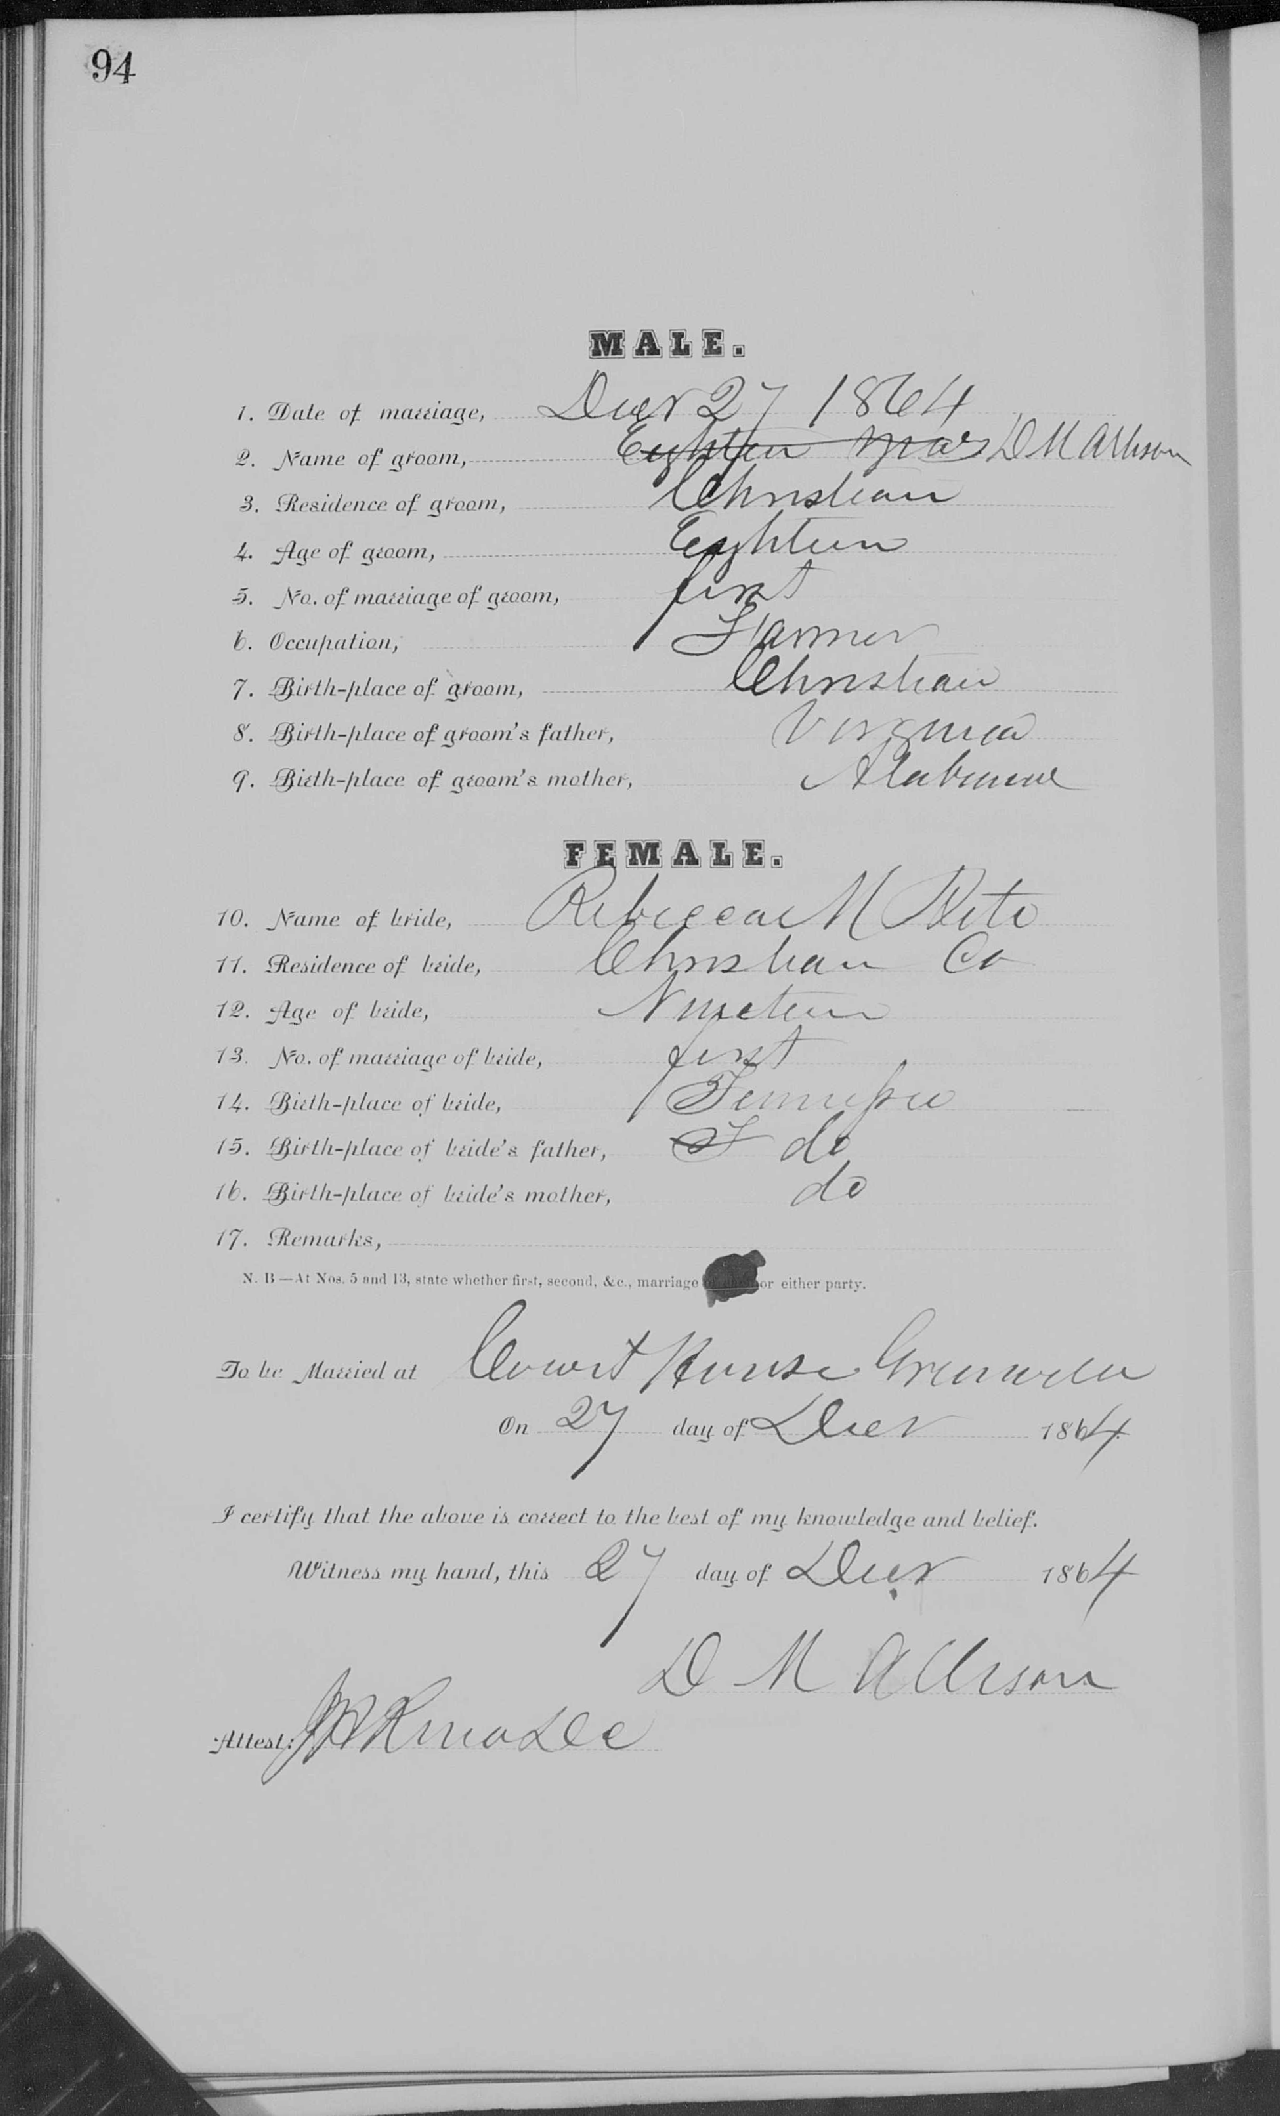 94
MALE.
1. Date of marriage, Decr 27 1864
2. Name of groom, Eighteen years D M Allison
3. Residence of groom, Christian
4. Age of groom, Eighteen
5. No. of marriage of groom, first
6. Occupation, Farmer
7. Birth-place of groom, Christian
8. Birth-place of groom's father, Virginia
9. Birth-place of groom's mother, Alabama
FEMALE.
10. Name of bride, Rebeccae M
11. Residence of bride, Christian Co
12. Age of bride, Nineteen
13. No. of marriage of bride, first
14. Birth-place of bride, Tennessee
15. Birth-place of bride's father, T do
16. Birth-place of bride's mother, do
17. Remarks,
N. B—At Nos. 5 and 13, state whether first, second, &c., marriage or either party.
To be Married at Court House
On 27 day of Decr 1864
I certify that the above is correct to the best of my knowledge and belief.
Witness my hand, this 27 day of Decr 1864
D M Allison
Attest: